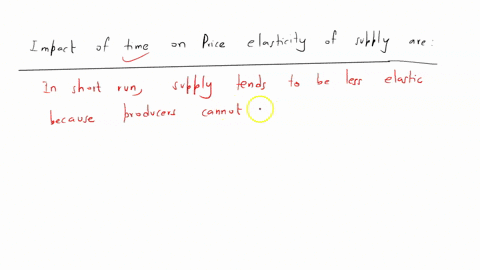 Impact of time on Price elasticity of supply are:
In short run, supply tends to be less elastic
because producers cannot